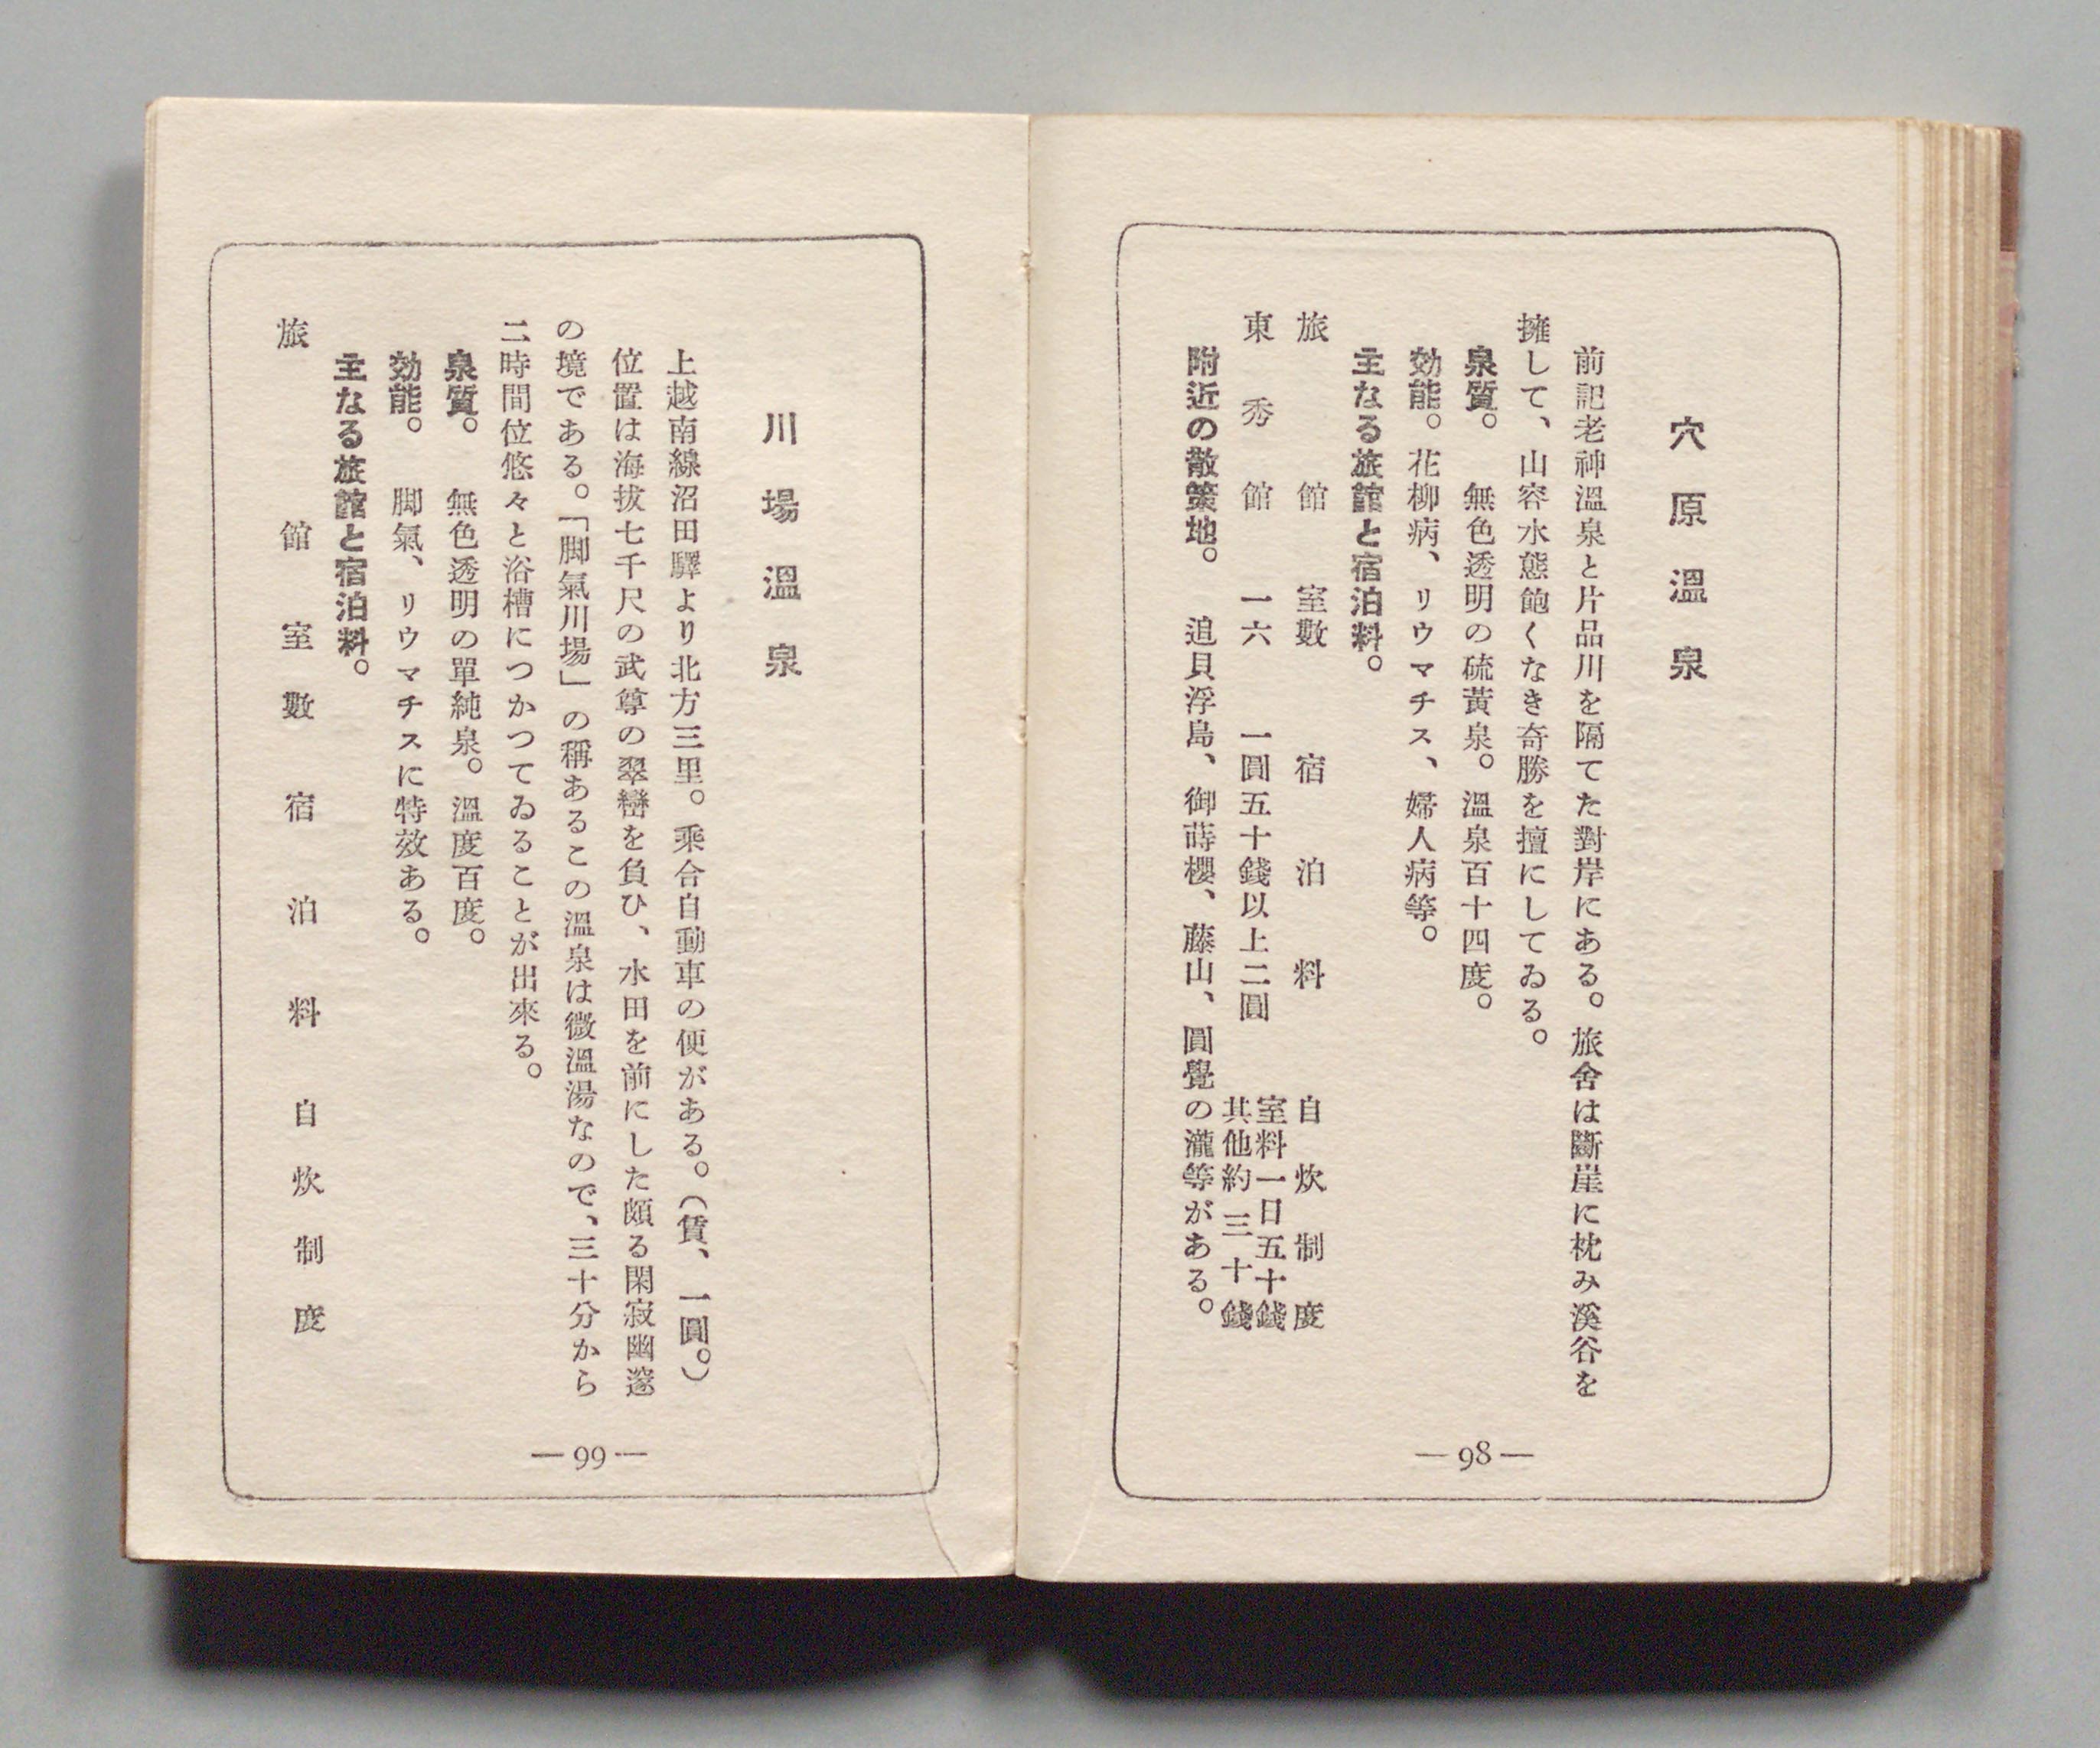 穴原溫泉
前記老神溫泉と片品川を隔てた對岸にある。旅舍は斷崖に枕み溪谷を
擁して、山容水態飽くなき奇勝を擅にしてゐる。
泉質。　無色透明の硫黃泉。溫泉百十四度。
効能。花柳病、リウマチス、婦人病等。
主なる旅館と宿泊料。
旅館　室數　宿泊料　自炊制度
東秀館　一六　一圓五十錢以上二圓　室料一日五十錢
其他約三十錢
附近の散策地。　追貝浮島、御蒔櫻、藤山、圓覺の瀧等がある。
— 98 —
川場溫泉
上越南線沼田驛より北方三里。乘合自動車の便がある。（賃、一圓。）
位置は海拔七千尺の武尊の翠巒を負ひ、水田を前にした頗る閑寂幽邃
の境である。「脚氣川場」の稱あるこの溫泉は微溫湯なので、三十分から
二時間位悠々と浴槽につかつてゐることが出來る。
泉質。　無色透明の單純泉。溫度百度。
効能。　脚氣、リウマチスに特效ある。
主なる旅館と宿泊料。
旅館　室數　宿泊料　自炊制度
— 99 —